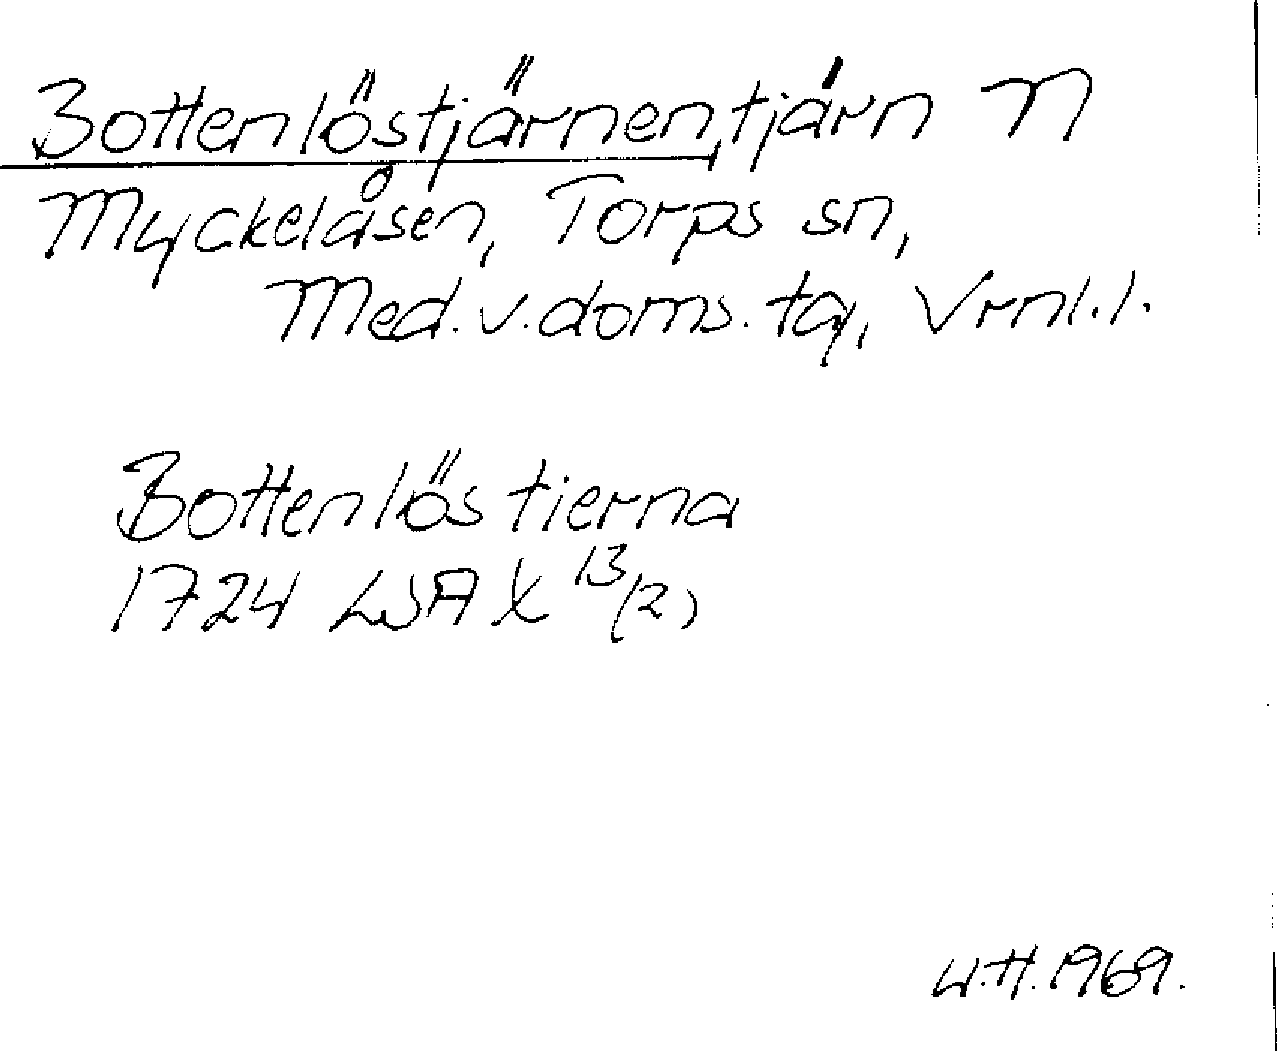 Bottenlöstjärnen, tjärn N
Myckelåsen, Torps sn,
Med.v.doms.tg, Vrnl.l.
Bottenlös tierna
1724 LSA X 13/(2)
U.H.1969.